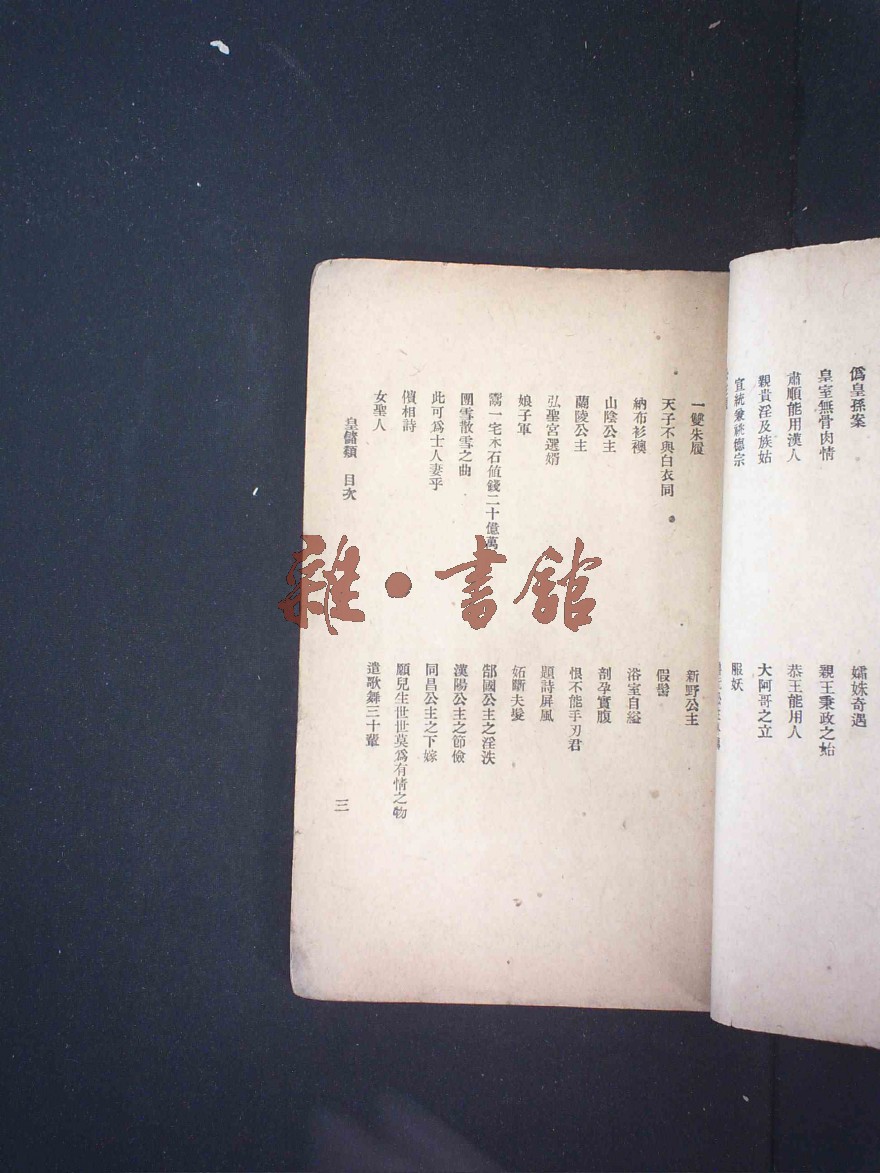 僞皇孫案
孀姝奇遇
皇室無骨肉情
親王秉政之始
肅順能用漢人
恭王能用人
親貴淫及族姑
大阿哥之立
宣統兼祧德宗
服妖
一雙朱履
新野公主
天子不與白衣同
假髻
納布衫襖
浴室自縊
山陰公主
剖孕實腹
蘭陵公主
恨不能手刃君
弘聖宮選婿
題詩屏風
娘子軍
妬斷夫髮
鬻一宅木石値錢二十億萬
郜國公主之淫泆
團雪散雪之曲
漢陽公主之節儉
此可爲士人妻乎
同昌公主之下嫁
儐相詩
願兒生世世莫爲有情之物
女聖人
遣歌舞三十輩
皇儲類 目次
三
雜·書館